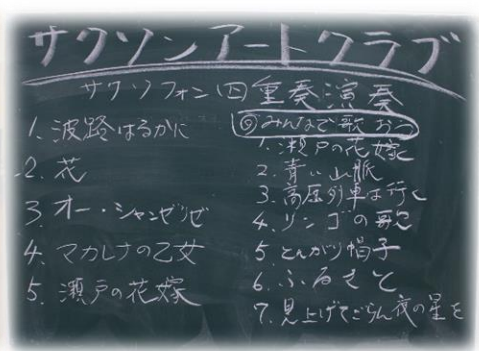 サクソンアートクラブ
サクソフォン四重奏演奏
1. 波路はるかに
2. 花
3 オー・シャンゼリゼ
4. マカレナの乙女
5. 瀬戸の花嫁
◎みんなで歌おう
1. 瀬戸の花嫁
2. 青い山脈
3. 高原列車は行く
4. リンゴの歌
5 とんがり帽子
6. ふるさと
7. 見上げてごらん夜の星を